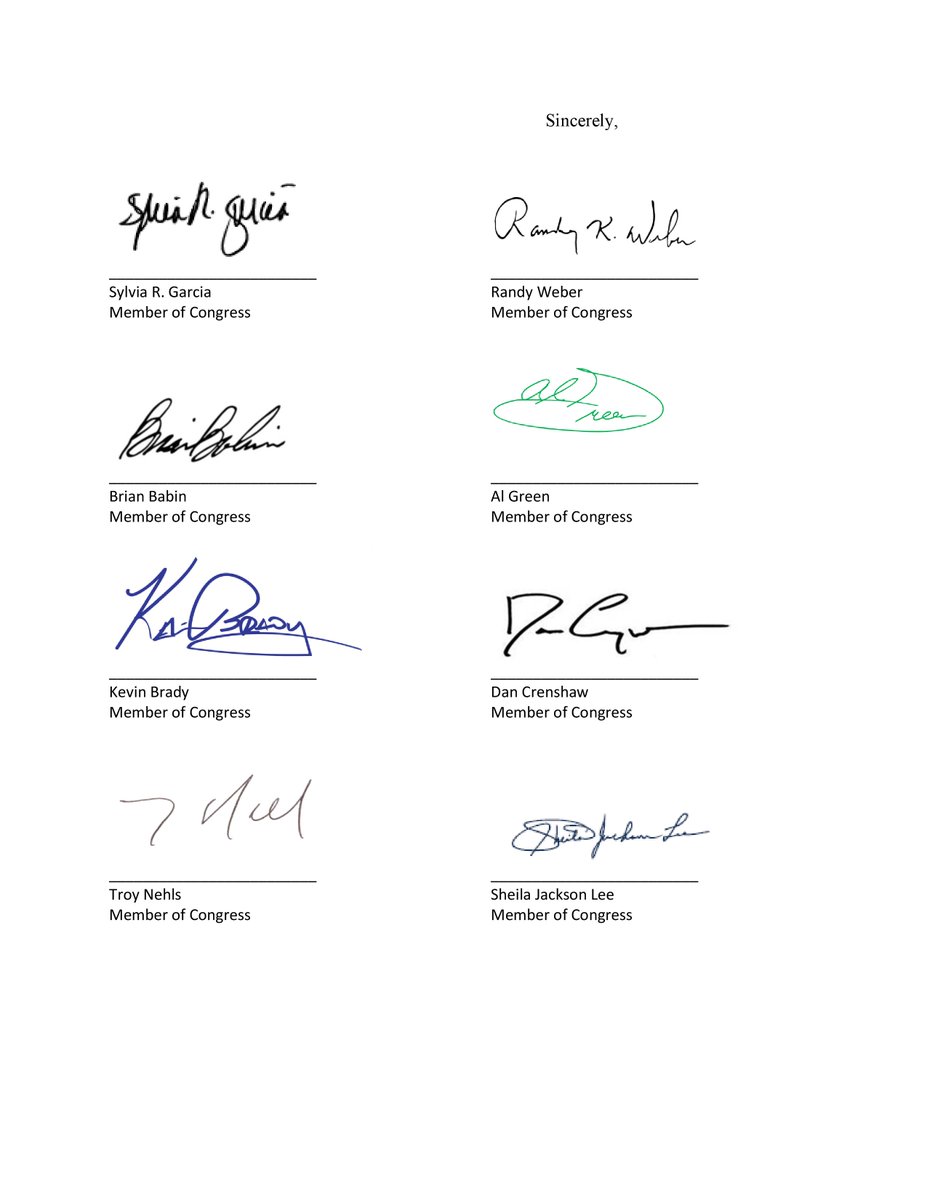 Sincerely,
Sylvia R. Garcia
Randy K. Weber
Sylvia R. Garcia
Member of Congress
Randy Weber
Member of Congress
Brian Babin
Al Green
Brian Babin
Member of Congress
Al Green
Member of Congress
Kevin Brady
Member of Congress
Dan Crenshaw
Member of Congress
Sheila Jackson Lee
Troy Nehls
Member of Congress
Sheila Jackson Lee
Member of Congress